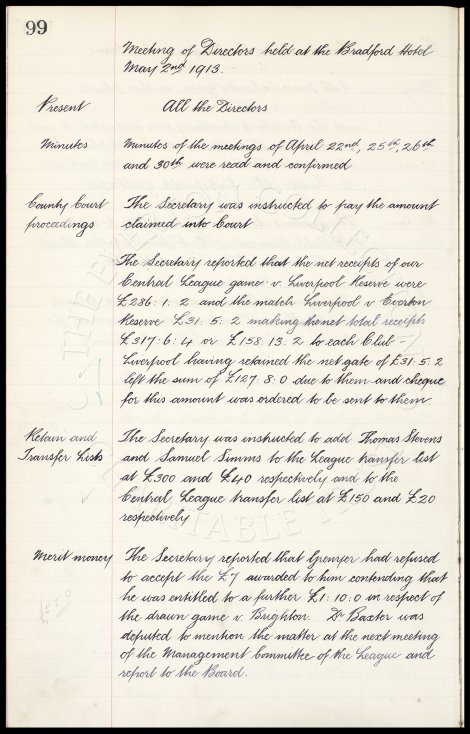 99
Meeting of Directors held at the Bradford Hotel
May 2nd 1913.
Present All the Directors
Minutes Minutes of the meetings of April 22nd, 25th, 26th
and 30th were read and confirmed
County Court The Secretary was instructed to pay the amount
proceedings claimed into Court
The Secretary reported that the net receipts of our
Central League game v Liverpool Reserve were
£286: 1: 2 and the match Liverpool v Everton
Reserve £31: 5: 2 making the net total receipts
£317: 6: 4 or £158. 13. 2 to each Club -
Liverpool having retained the net gate of £31: 5: 2
left the sum of £127: 8: 0 due to them and cheque
for this amount was ordered to be sent to them.
Retain and The Secretary was instructed to add Thomas Stevens
Transfer Lists and Samuel Simms to the League transfer list
at £300 and £40 respectively and to the
Central League transfer list at £150 and £20
respectively
Merit money The Secretary reported that Grenyer had refused
to accept the £7 awarded to him contending that
he was entitled to a further £1: 10: 0 in respect of
the drawn game v. Brighton. Dr Baxter was
deputed to mention the matter at the next meeting
of the Management Committee of the League and
report to the Board.